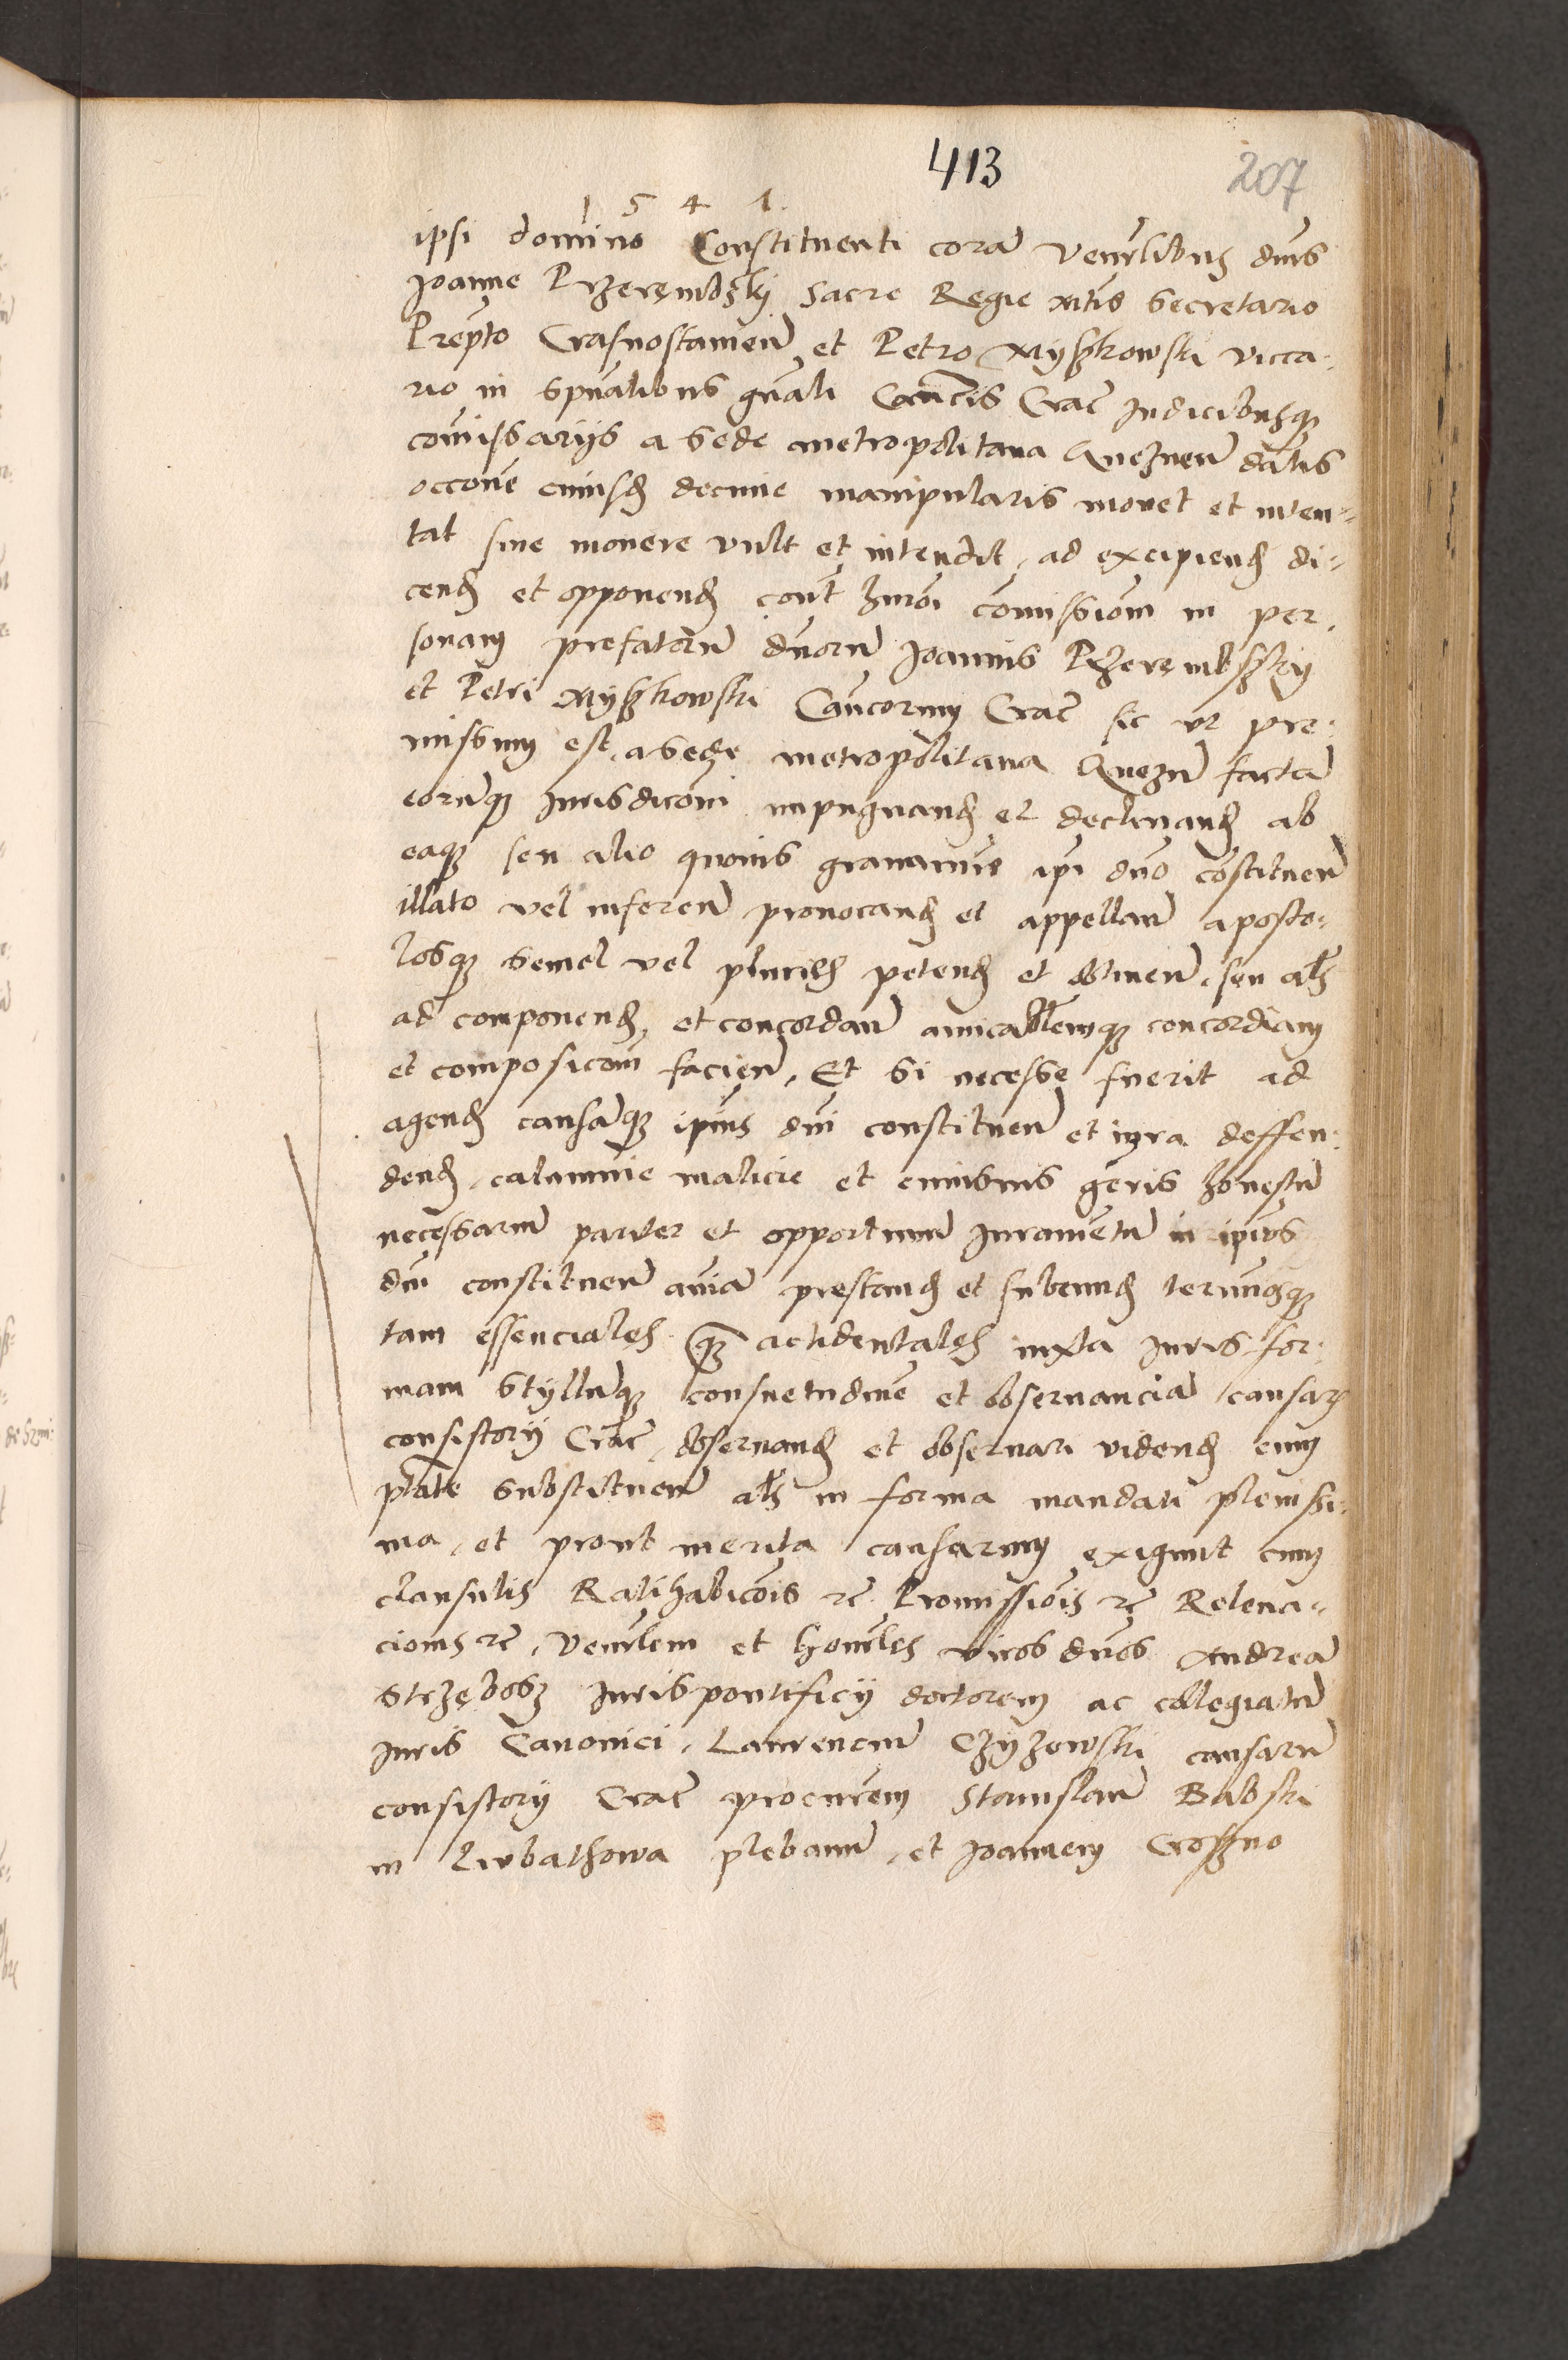 413
207
1 5 4 1.
ipsi domino Constituenti corã venerlibus dnis
Joanne Przerembski Sacre Regie Mtis Secretario
Prepto Crasnostamen̄ et Petro Myszkowski vicca-
rio in spualibus gnali Canctis Crac̄ Judicibusq
comissarijs a sede metropolitana Gneznen̄ datis
occone cuiusd decime manipularis movet et inten=
tat sive movere vult et intendit, ad excipiend di=
cend et opponend cont hmoi comissiom in per-
sonam prefatorū dnorū Joannis Przerembszky
et Petri Myszkowski Cancorum Crac̄ sic ut pre-
missum est, a sede metropolitana Gnezn̄ factā
eorumq Jurisdiconi impugnand et declinand ab
eaq seu alio quovis gravamine ipi dno constituen̄
illato vel inferen̄ provocand et appellan̄ aposto-
losq semel vel pluries petend et obtinen̄, seu als
ad componend, et concordan̄ amicabilemq concordiam
et composicom facien̄, Et si necesse fuerit ad
agend causāq ipius dni constituen̄ et iura deffen-
dend, calumnie malicie et cuiusvis geris honestū
necessariū pariter et opportunū Juramentū in ipius
dni constituen̄ aniā prestand et subeund terminosq
tam essenciales q̄ accidentales iuxta Juris for-
mam Styllūq consuetudine et observanciā causarū
consistorij Crac̄, observand et observari vidend cum
ptate substituen̄ als in forma mandati plenissi-
ma, et prout merita causarum exigunt cum
clausulis Ratihabicois rc̄ Promissiois rc̄ Releva-
cionis rc̄, Venerlem et honorles viros dnos Andreā
Strzębosz Juris pontificij doctorem ac collegiatū
Juris Canonici, Laurenciū Czyzowski causarū
consistorij Crac̄ procurem Stanislaū Babski
in Lubathowa plebanū, et Joannem Croszno